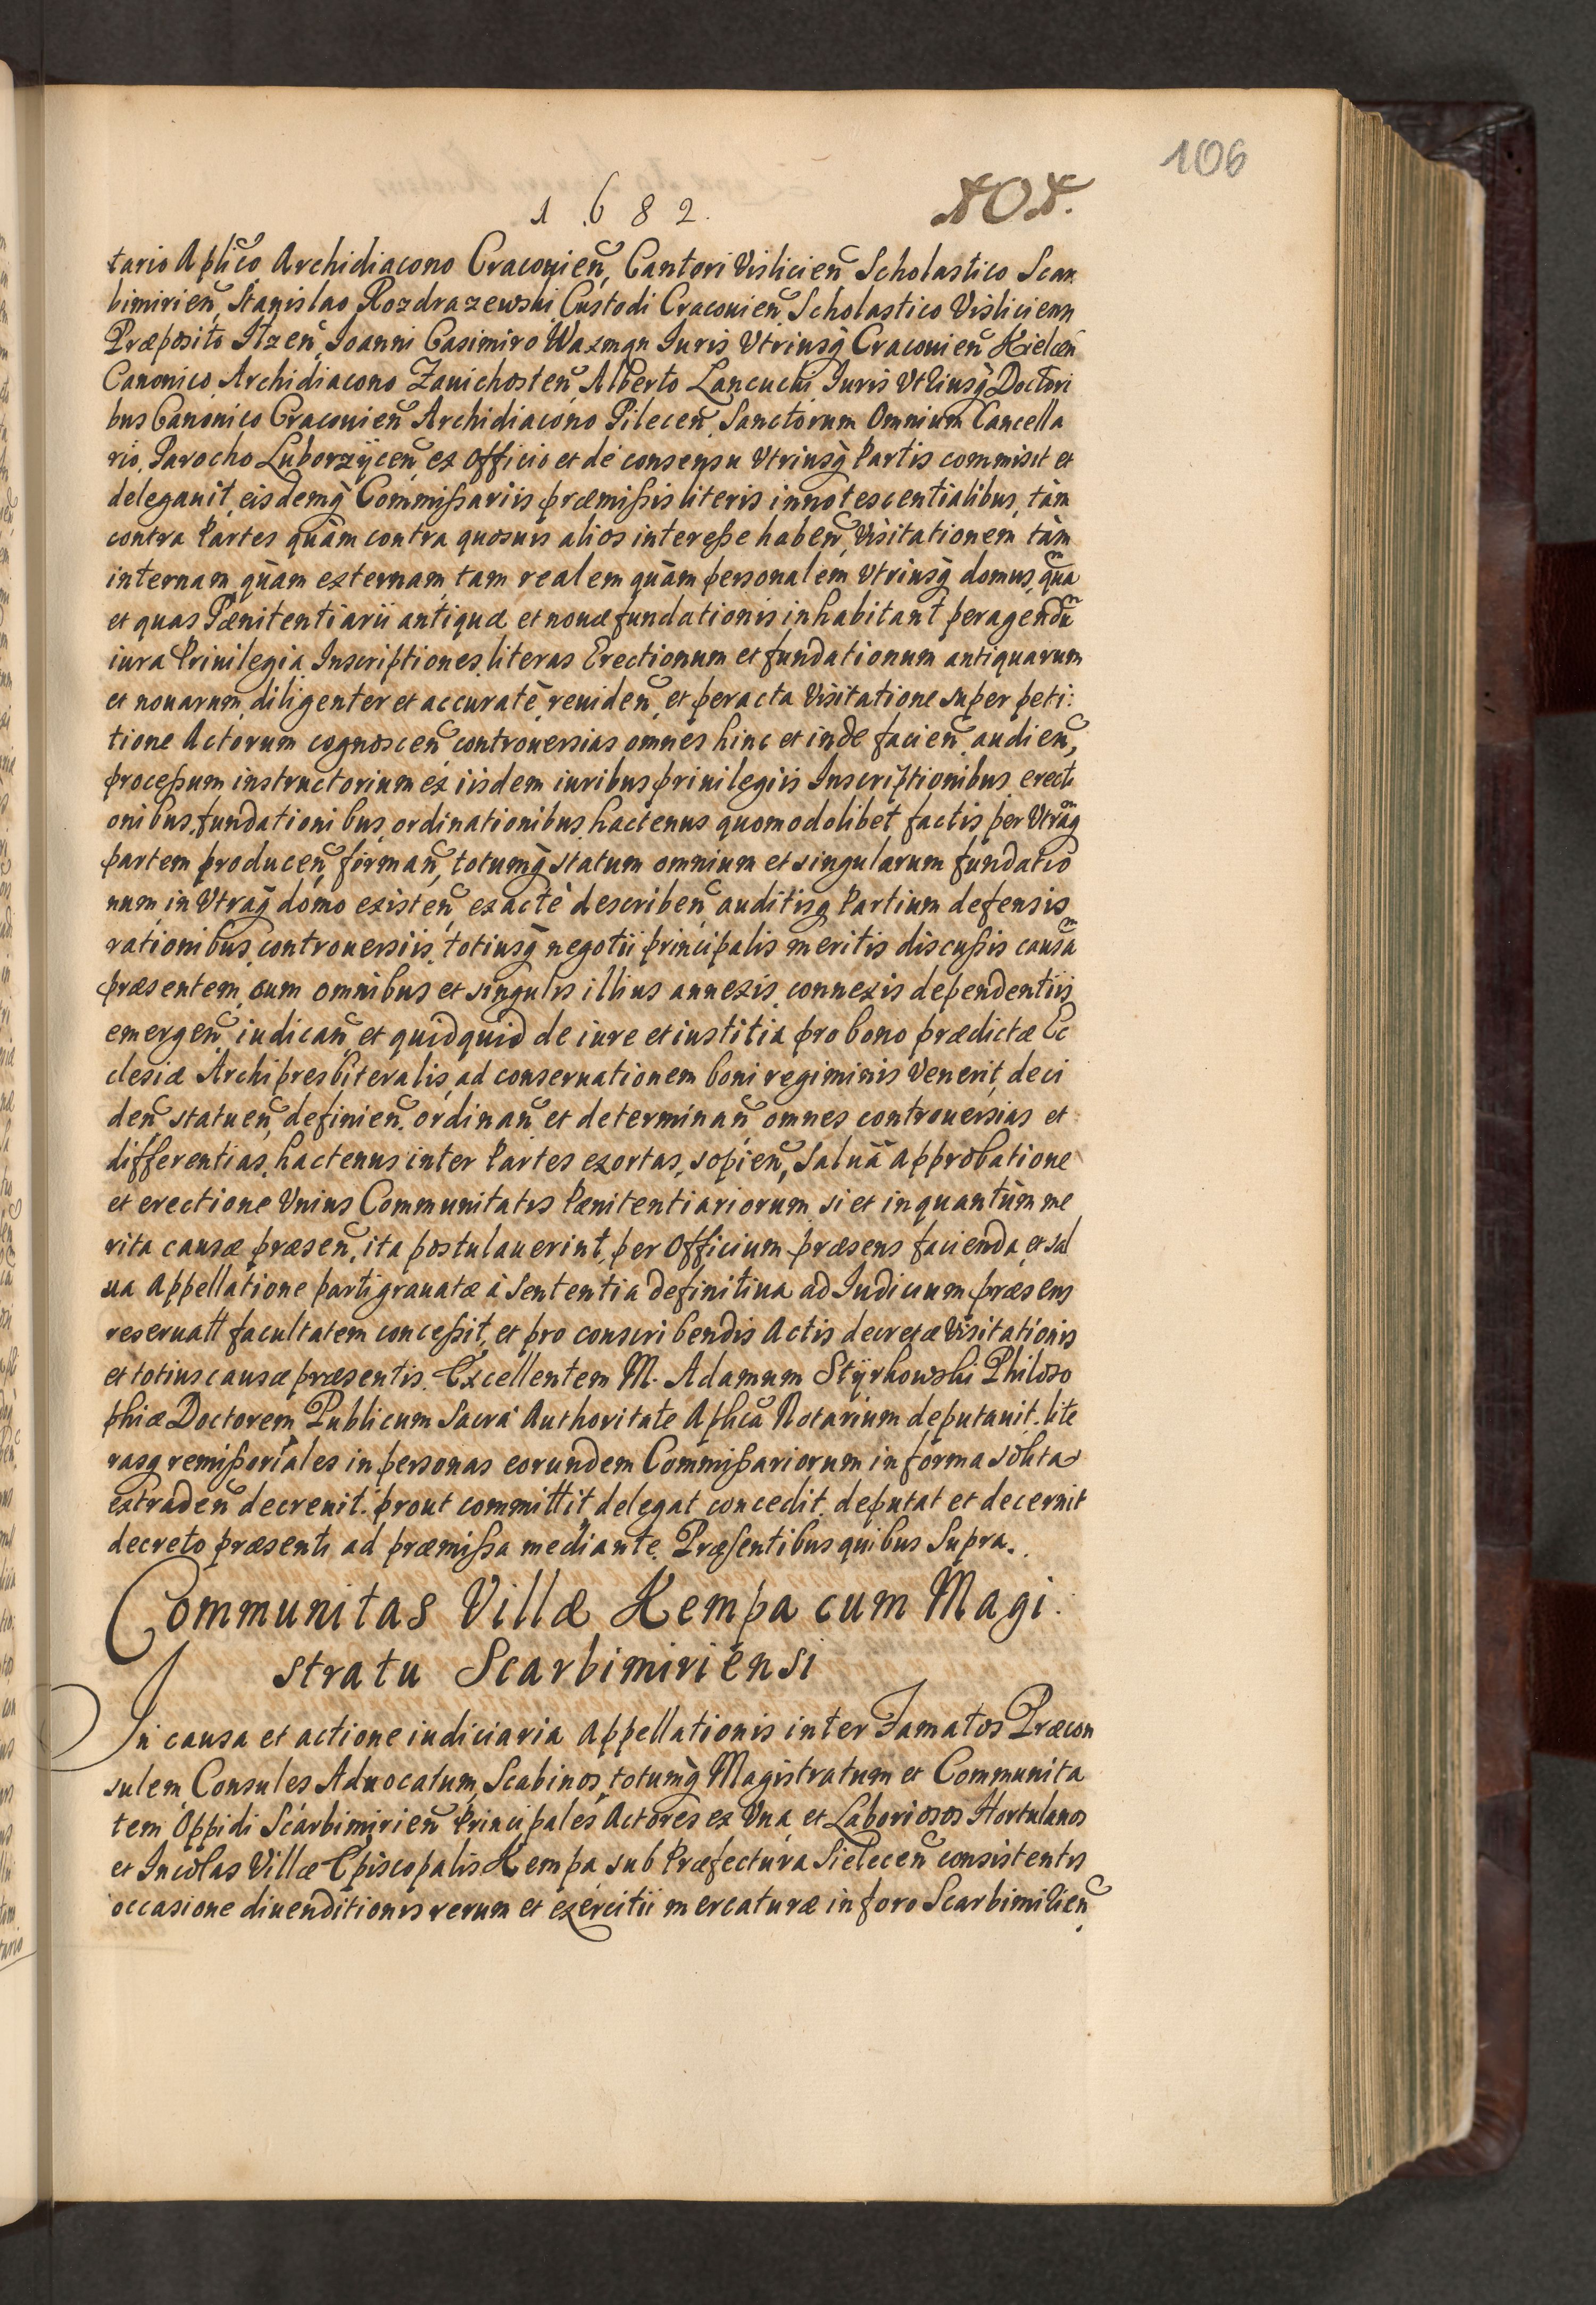 106
1682.
104.
tario Aplico Archidiacono Cracouien, Cantori Vislicien Scholastico Scar
bimirien, Stanislao Rozdrazewski Custodi Cracouien Scholastico Visliciens
Præposito Itzen, Ioanni Casimiro Wazmgn Iuris Vtriusq Cracouien Kielcen
Canonico, Archidiacono Zauichosten, Alberto Lancucki Iuris Vtriusq Doctori
bus Canonico Cracouien Archidiacono Pilecen, Sanctorum Omnium Cancella
rio, Parocho Luborzÿcen, ex Officio et de consensu Vtriusq Partis commisit et
delegauit, eisdemq Commissariis præmissis literis innotescentialibus, tàm
contra Partes quàm contra quosuis alios interesse haben, Visitationem tàm
internam quàm externam, tam realem quàm personalem Vtriusq domus, qua
et quas Pænitentiarii antiquæ et nouæ fundationis inhabitant peragendũ
iura Priuilegia Inscriptiones literas Erectionum et fundationum antiquarum
et nouarum, diligenter et accuratè reuiden, et peracta Visitatione super peti:
tione Actorum cognoscen controuersias omnes hinc et inde facien, audien,
processum instructorium ex iisdem iuribus priuilegiis Inscriptionibus erecti
onibus, fundationibus ordinationibus hactenus quomodolibet factis, per Vtrãq
partem producen, forman, totumq statum omnium et singularum fundatio
num in Vtraq domo existen, exactè describen auditisq Partium defensis
rationibus, controuersiis, totiusq negotii principalis meritis discussis causã
præsentem, cum omnibus et singulis illius annexis, connexis dependentiis
emergen iudican et quidquid de iure et iustitia pro bono prædictæ Ec
clesiæ Archipresbiteralis, ad conseruationem boni regiminis Venerit, deci
den statuen, definien, ordinan et determinan omnes controuersias et
differentias, hactenus inter Partes exortas, sopien, Saluâ approbatione
et erectione Vnius Communitatis Pænitentiariorum, si et inquantùm me
rita causæ præsen, ita postulauerint, per Officium præsens facienda, et sal
ua Appellatione parti grauatæ à Sententia definitiua ad Iudicium præsens
reseruatt facultatem concessit, et pro conscribendis Actis decretæ Visitationis
et totius causæ præsentis. Excellentem M. Adamum Stÿrkowski Philoso
phiæ Doctorem, Publicum Sacra Authoritate Aplica Notarium deputauit, lite
rasq remissoriales in personas eorundem Commissariorum in forma solita
extraden decreuit. prout committit, delegat concedit, deputat et decernit
decreto præsenti ad præmissa mediante. Præsentibus quibus Supra.
Communitas Villæ Kempa cum Magi
stratu Scarbimiriensi
In causa et actione iudiciaria Appellationis inter Famatos Præcon
sulem, Consules Aduocatum, Scabinos, totumq Magistratum et Communita
tem Oppidi Scarbimirien Principales Actores ex Vna, et Laboriosos Hortulanos
et Incolas Villæ Episcopalis Kempa sub Præfectura Sielecen consistentes
occasione diuenditionis rerum et exercitii mercaturæ in foro Scarbimirien